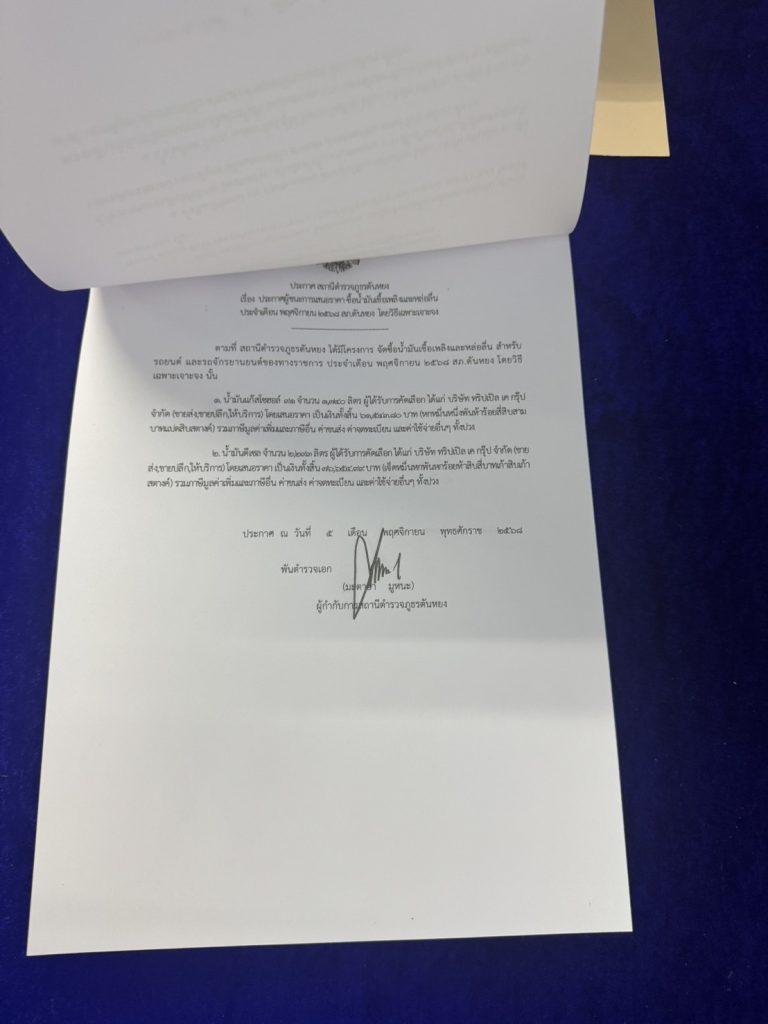 ประกาศ สถานีตำรวจภูธรตันหยง
เรื่อง ประกาศผู้ชนะการเสนอราคา ซื้อน้ำมันเชื้อเพลิงและหล่อลื่น
ประจำเดือน พฤศจิกายน ๒๕๖๘ สภ.ตันหยง โดยวิธีเฉพาะเจาะจง
ตามที่ สถานีตำรวจภูธรตันหยง ได้มีโครงการ จัดซื้อน้ำมันเชื้อเพลิงและหล่อลื่น สำหรับ
รถยนต์ และรถจักรยานยนต์ของทางราชการ ประจำเดือน พฤศจิกายน ๒๕๖๘ สภ.ตันหยง โดยวิธี
เฉพาะเจาะจง นั้น
๑. น้ำมันแก๊สโซฮอล์ ๙๑ จำนวน ลิตร ผู้ได้รับการคัดเลือก ได้แก่ บริษัท ทริปเปิล เค กรุ๊ป
จำกัด (ขายส่ง,ขายปลีก,ให้บริการ) โดยเสนอราคา เป็นเงินทั้งสิ้น ๖๑,๕๔๓.๘๐ บาท (หกหมื่นหนึ่งพันห้าร้อยสี่สิบสาม
บาทแปดสิบสตางค์) รวมภาษีมูลค่าเพิ่มและภาษีอื่น ค่าขนส่ง ค่าจดทะเบียน และค่าใช้จ่ายอื่นๆ ทั้งปวง
๒. น้ำมันดีเซล จำนวน ลิตร ผู้ได้รับการคัดเลือก ได้แก่ บริษัท ทริปเปิล เค กรุ๊ป จำกัด (ขาย
ส่ง,ขายปลีก,ให้บริการ) โดยเสนอราคา เป็นเงินทั้งสิ้น ๗๖,๖๕๔.๙๙ บาท (เจ็ดหมื่นหกพันหกร้อยห้าสิบสี่บาทเก้าสิบเก้า
สตางค์) รวมภาษีมูลค่าเพิ่มและภาษีอื่น ค่าขนส่ง ค่าจดทะเบียน และค่าใช้จ่ายอื่นๆ ทั้งปวง
ประกาศ ณ วันที่ ๕ เดือน พฤศจิกายน พุทธศักราช ๒๕๖๘
พันตำรวจเอก
มูหนะ)
ผู้กำกับการสถานีตำรวจภูธรตันหยง